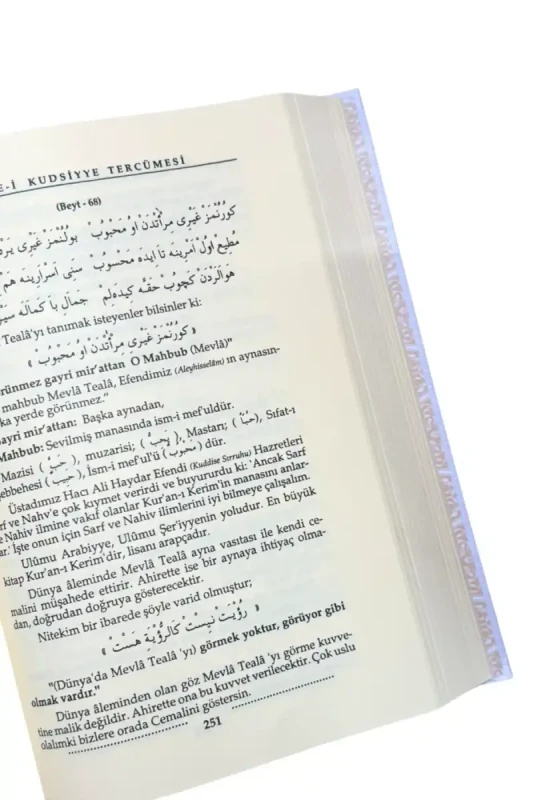 E-İ KUDSİYYE TERCÜMESİ
(Beyt - 68)
كورُنْمَزْ غَيْرِى مِرْاٰتْدَنْ اُو مَحْبُوبْ بولُنْمَزْ غَيْرِى
مُطِيعْ اُولْ اَمْرِينَه تَا اَيدَه مَحْسُوبْ سَنِى اَسْرَارِينَه هَمْ
هوالَرْدَنْ كَچُوبْ حَقَّه كِيدَه لِمْ جَمَالِ بَا كَمَالَه
Tealâ'yı tanımak isteyenler bilsinler ki:
« كورُنْمَزْ غَيْرِى مِرْاٰتْدَنْ اُو مَحْبُوبْ »
rünmez gayri mir'attan O Mahbub (Mevlâ)"
mahbub Mevlâ Tealâ, Efendimiz (Aleyhisselâm) ın aynasın-
ka yerde görünmez."
ayri mir'attan: Başka aynadan,
Mahbub: Sevilmiş manasında ism-i mef'uldür.
Mazisi (حَبَّ), muzarisi; (يَحِبُّ), Mastarı; (حُبًّا), Sıfat-ı
şebbehesi (حَبِيبٌ), İsm-i mef'ulü (مَحْبُوبٌ) dür.
Üstadımız Hacı Ali Haydar Efendi (Kuddise Sırruhu) Hazretleri
rf ve Nahv'e çok kıymet verirdi ve buyururdu ki: 'Ancak Sarf
ve Nahiv ilmine vakıf olanlar Kur'an-ı Kerim'in manasını anlar-
lar.' İşte onun için Sarf ve Nahiv ilimlerini iyi bilmeye çalışalım.
Ulûmu Arabiyye, Ulûmu Şer'iyyenin yoludur. En büyük
kitap Kur'an-ı Kerim'dir, lisanı arapçadır.
Dünya âleminde Mevlâ Tealâ ayna vasıtası ile kendi ce-
malini müşahede ettirir. Ahirette ise bir aynaya ihtiyaç olma-
dan, doğrudan doğruya gösterecektir.
Nitekim bir ibarede şöyle varid olmuştur;
« رُؤْيَتْ نِيسْتْ كَالرُّؤْيَةِ هَسْتْ »
"(Dünya'da Mevlâ Tealâ 'yı) görmek yoktur, görüyor gibi
olmak vardır."
Dünya âleminden olan göz Mevlâ Tealâ 'yı görme kuvve-
tine malik değildir. Ahirette ona bu kuvvet verilecektir. Çok uslu
olalımki bizlere orada Cemalini göstersin.
251